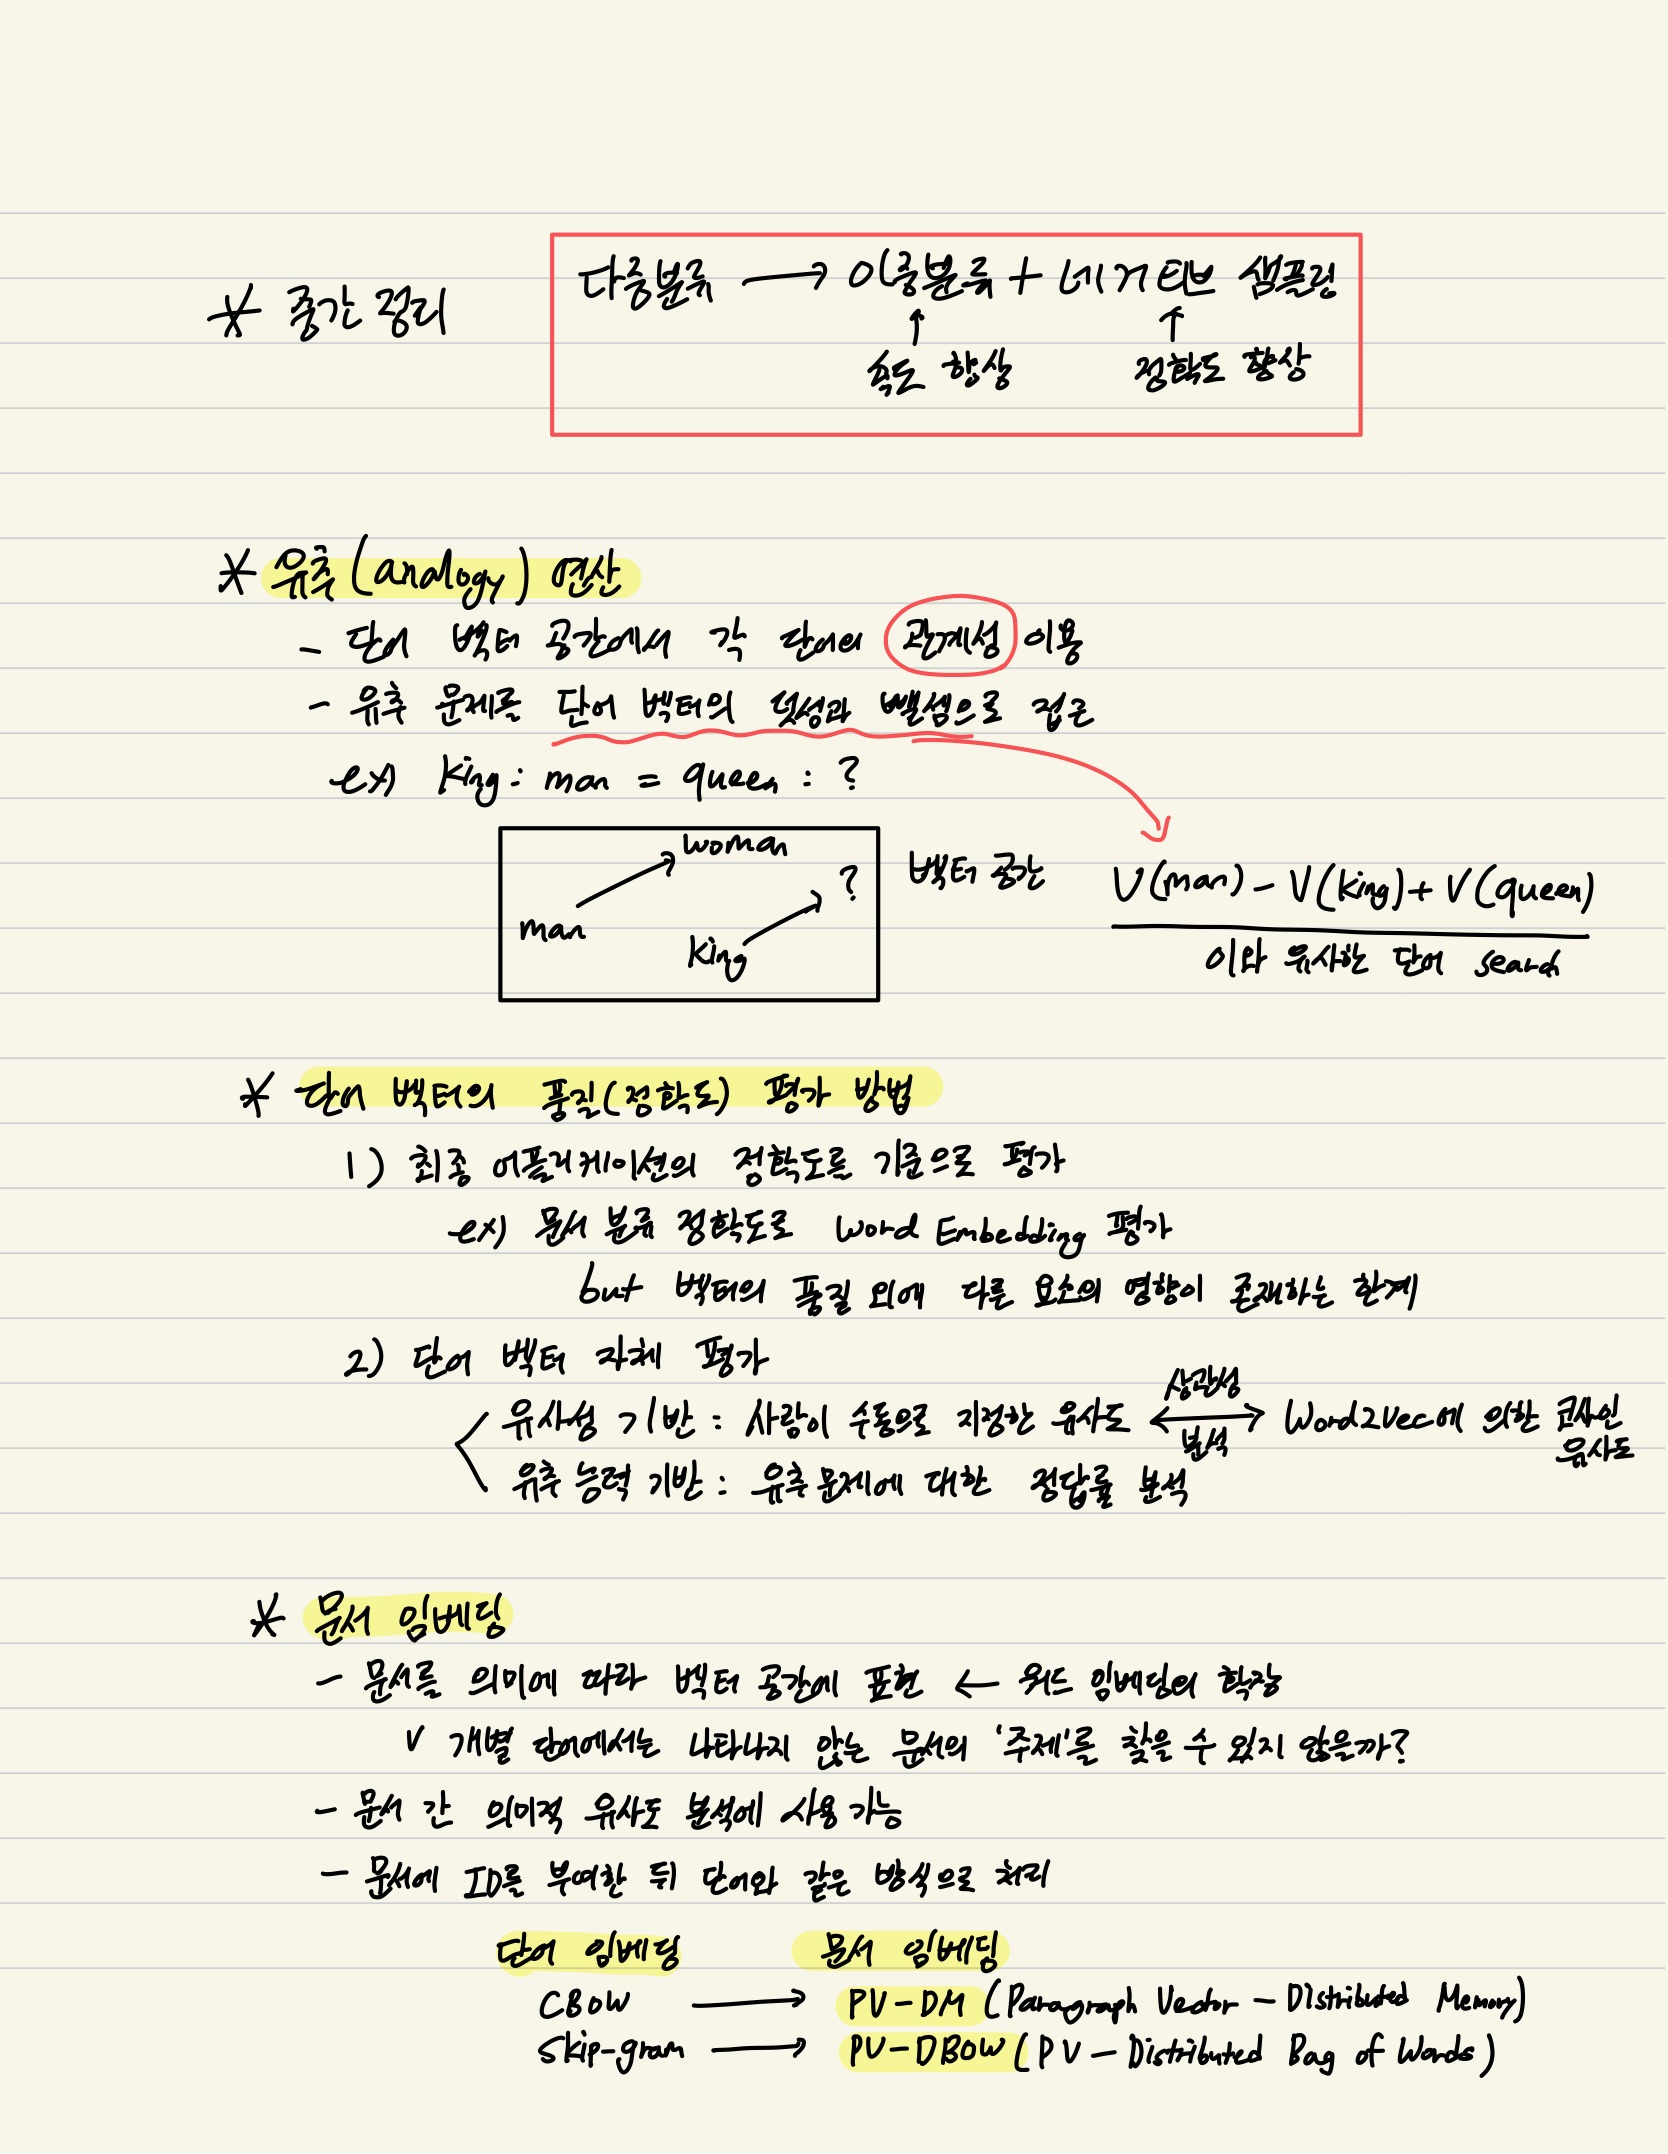 * 중간 정리
다중분류 → 이중분류 + 네거티브 샘플링
↑ ↑
속도 향상 정확도 향상
* 유추(analogy) 연산
- 단어 벡터 공간에서 각 단어의 관계성 이용
- 유추 문제를 단어 벡터의 덧셈과 뺄셈으로 접근
ex) king : man = queen : ?
woman
?
man
king
벡터 공간
V(man) - V(king) + V(queen)
이와 유사한 단어 search
* 단어 벡터의 품질(정확도) 평가 방법
1) 최종 어플리케이션의 정확도를 기준으로 평가
ex) 문서 분류 정확도로 Word Embedding 평가
but 벡터의 품질 외에 다른 요소의 영향이 존재하는 한계
2) 단어 벡터 자체 평가
유사성 기반 : 사람이 수동으로 지정한 유사도 ↔ Word2Vec에 의한 코사인 유사도
상관성
분석
유추 능력 기반 : 유추 문제에 대한 정답률 분석
* 문서 임베딩
- 문서를 의미에 따라 벡터 공간에 표현 ← 워드 임베딩의 확장
V 개별 단어에서는 나타나지 않는 문서의 '주제'를 찾을 수 있지 않을까?
- 문서 간 의미적 유사도 분석에 사용 가능
- 문서에 ID를 부여한 뒤 단어와 같은 방식으로 처리
단어 임베딩 문서 임베딩
CBOW → PV-DM (Paragraph Vector - Distributed Memory)
Skip-gram → PV-DBOW (PV - Distributed Bag of Words)